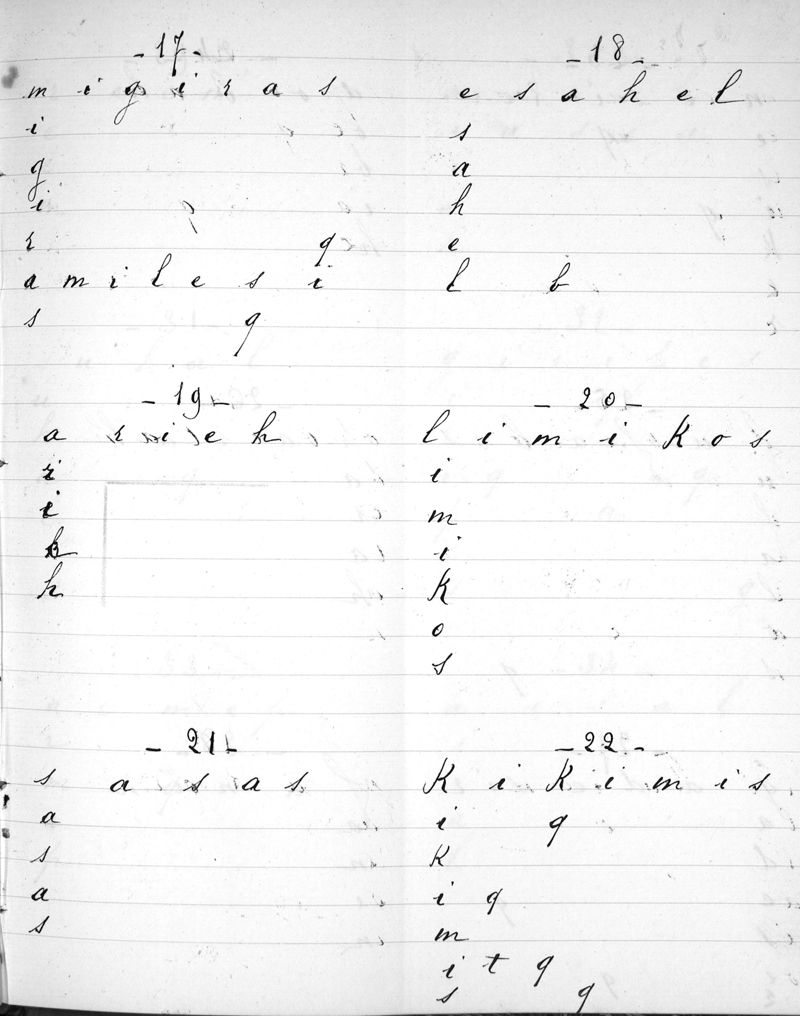 -17-
m i g i r a s
i
g
i
r q
a m i l e s i
s q
-18-
e s a h e l
s
a
h
e
l b
-19-
a r i e h
r
i
h
-20-
l i m i K o s
i
m
i
K
o
s
-21-
s a s a s
a
s
a
s
-22-
K i K i m i s
i q
K
i q
m
i t q
s q